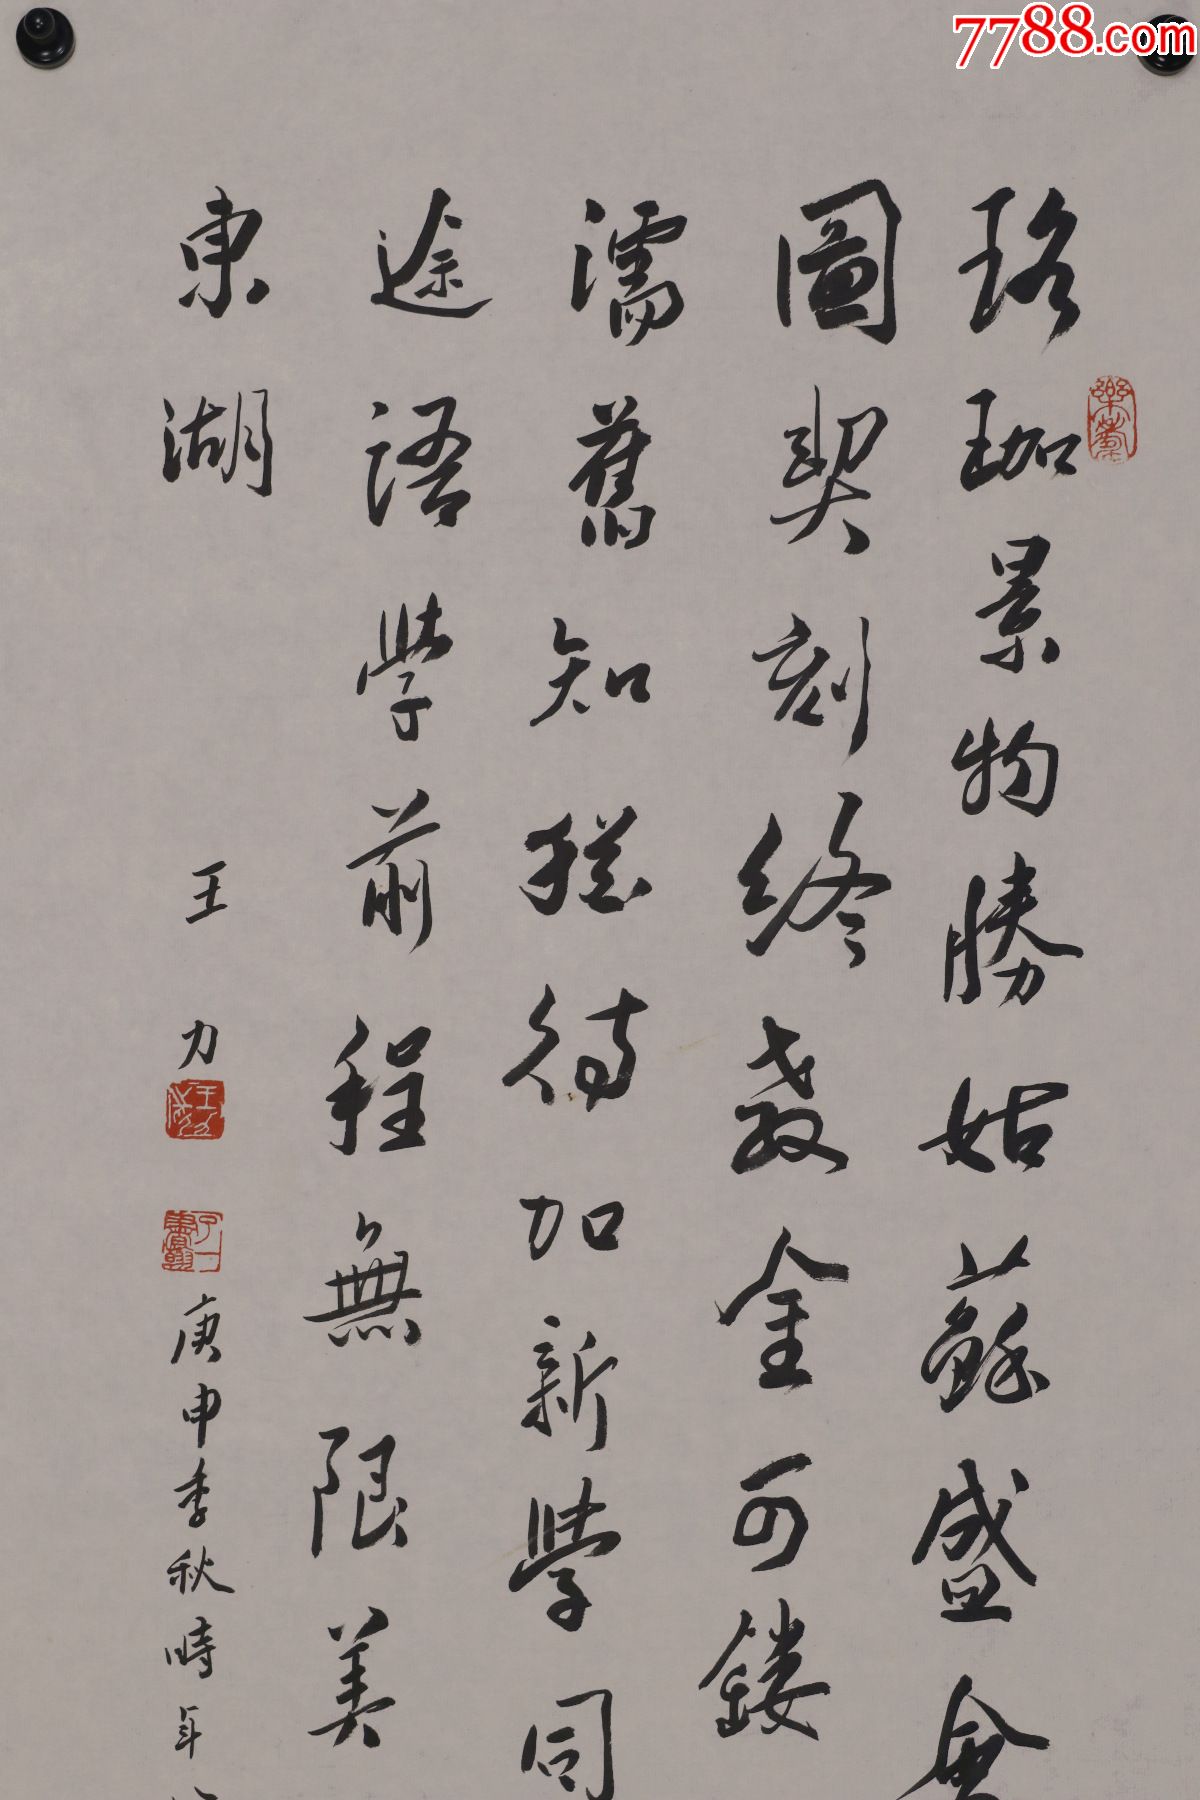 7788.com
珞珈景物勝姑蘇盛會
圖契刻終教金可鏤
濡舊知猶待加新學同
途語學前程無限美
東湖
王力
庚申季秋時年